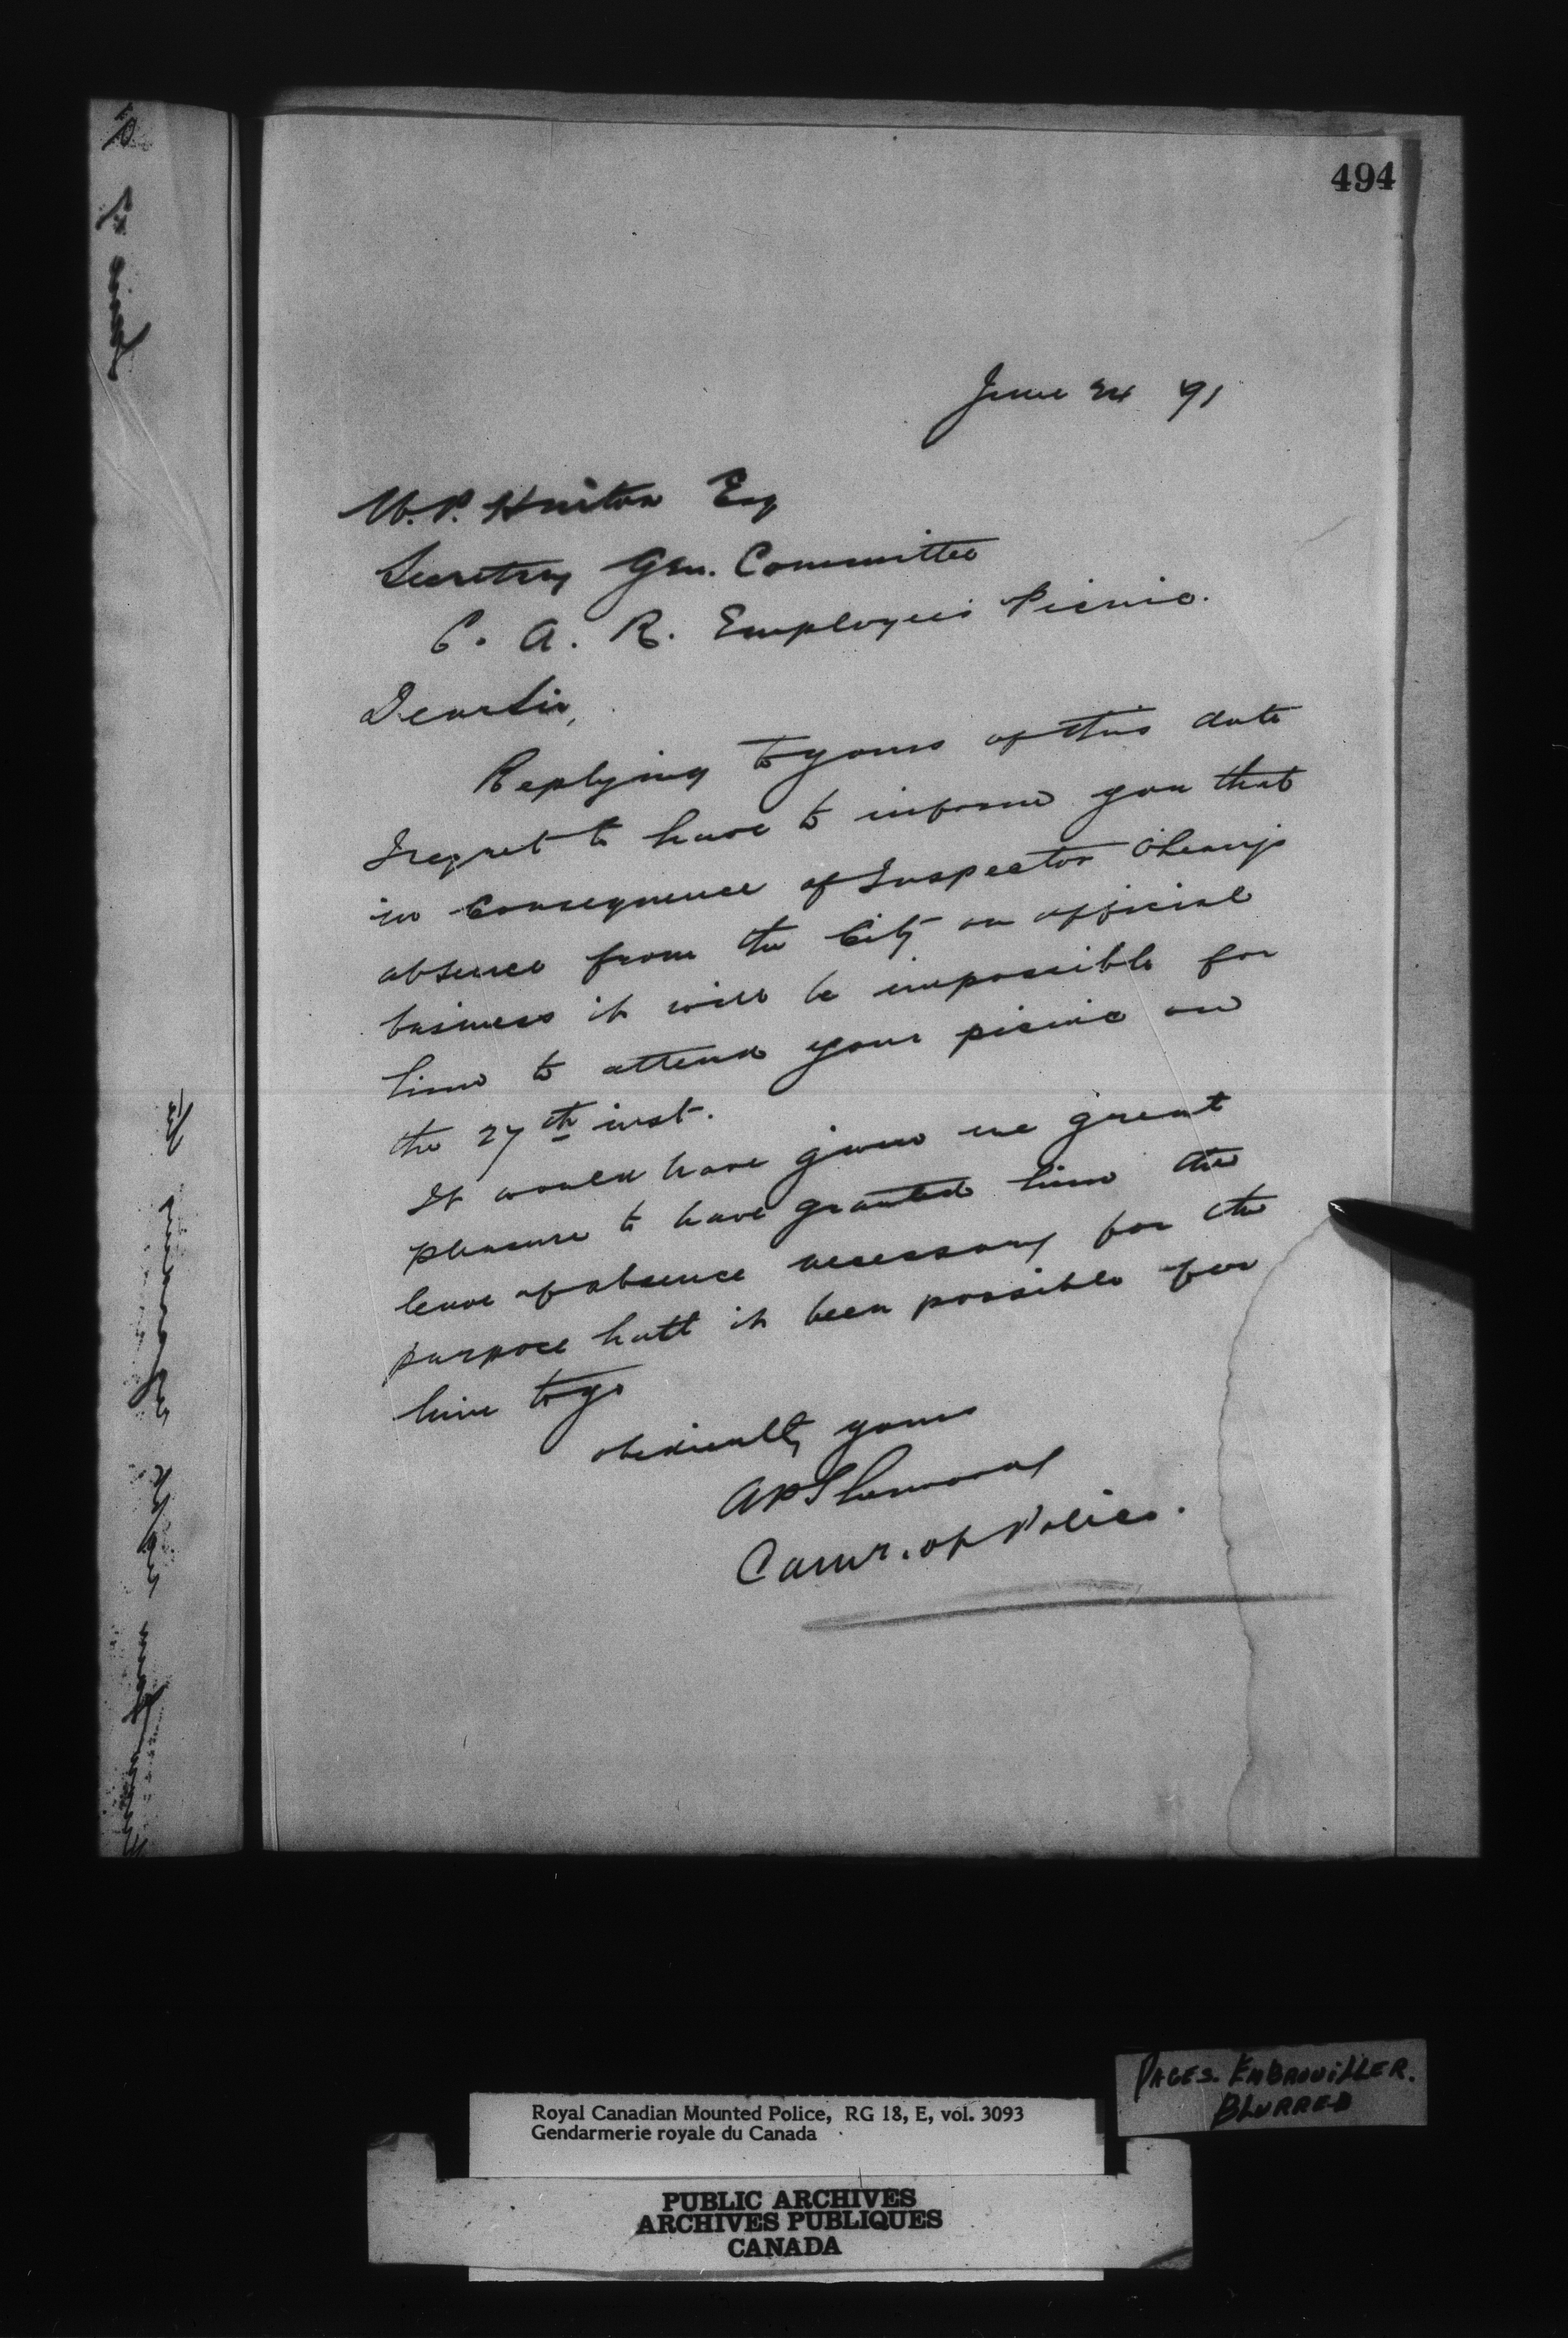 494
June 24 91
W. P. Hinton Esq
Secretary Gen. Committee
C. A. R. Employees Picnic.
Dear Sir,
Replying to yours of this date
I regret to have to inform you that
in consequence of Inspector O'Leary's
absence from the City on official
business it will be impossible for
him to attend your picnic on
the 27th inst.
It would have given me great
pleasure to have granted him the
leave of absence necessary for the
purpose had it been possible for
him to go
obediently yours
A P Sherwood
Comr. of Police.
PAGES. EMBROUILLER.
BLURRED
Royal Canadian Mounted Police, RG 18, E, vol. 3093
Gendarmerie royale du Canada
PUBLIC ARCHIVES
ARCHIVES PUBLIQUES
CANADA